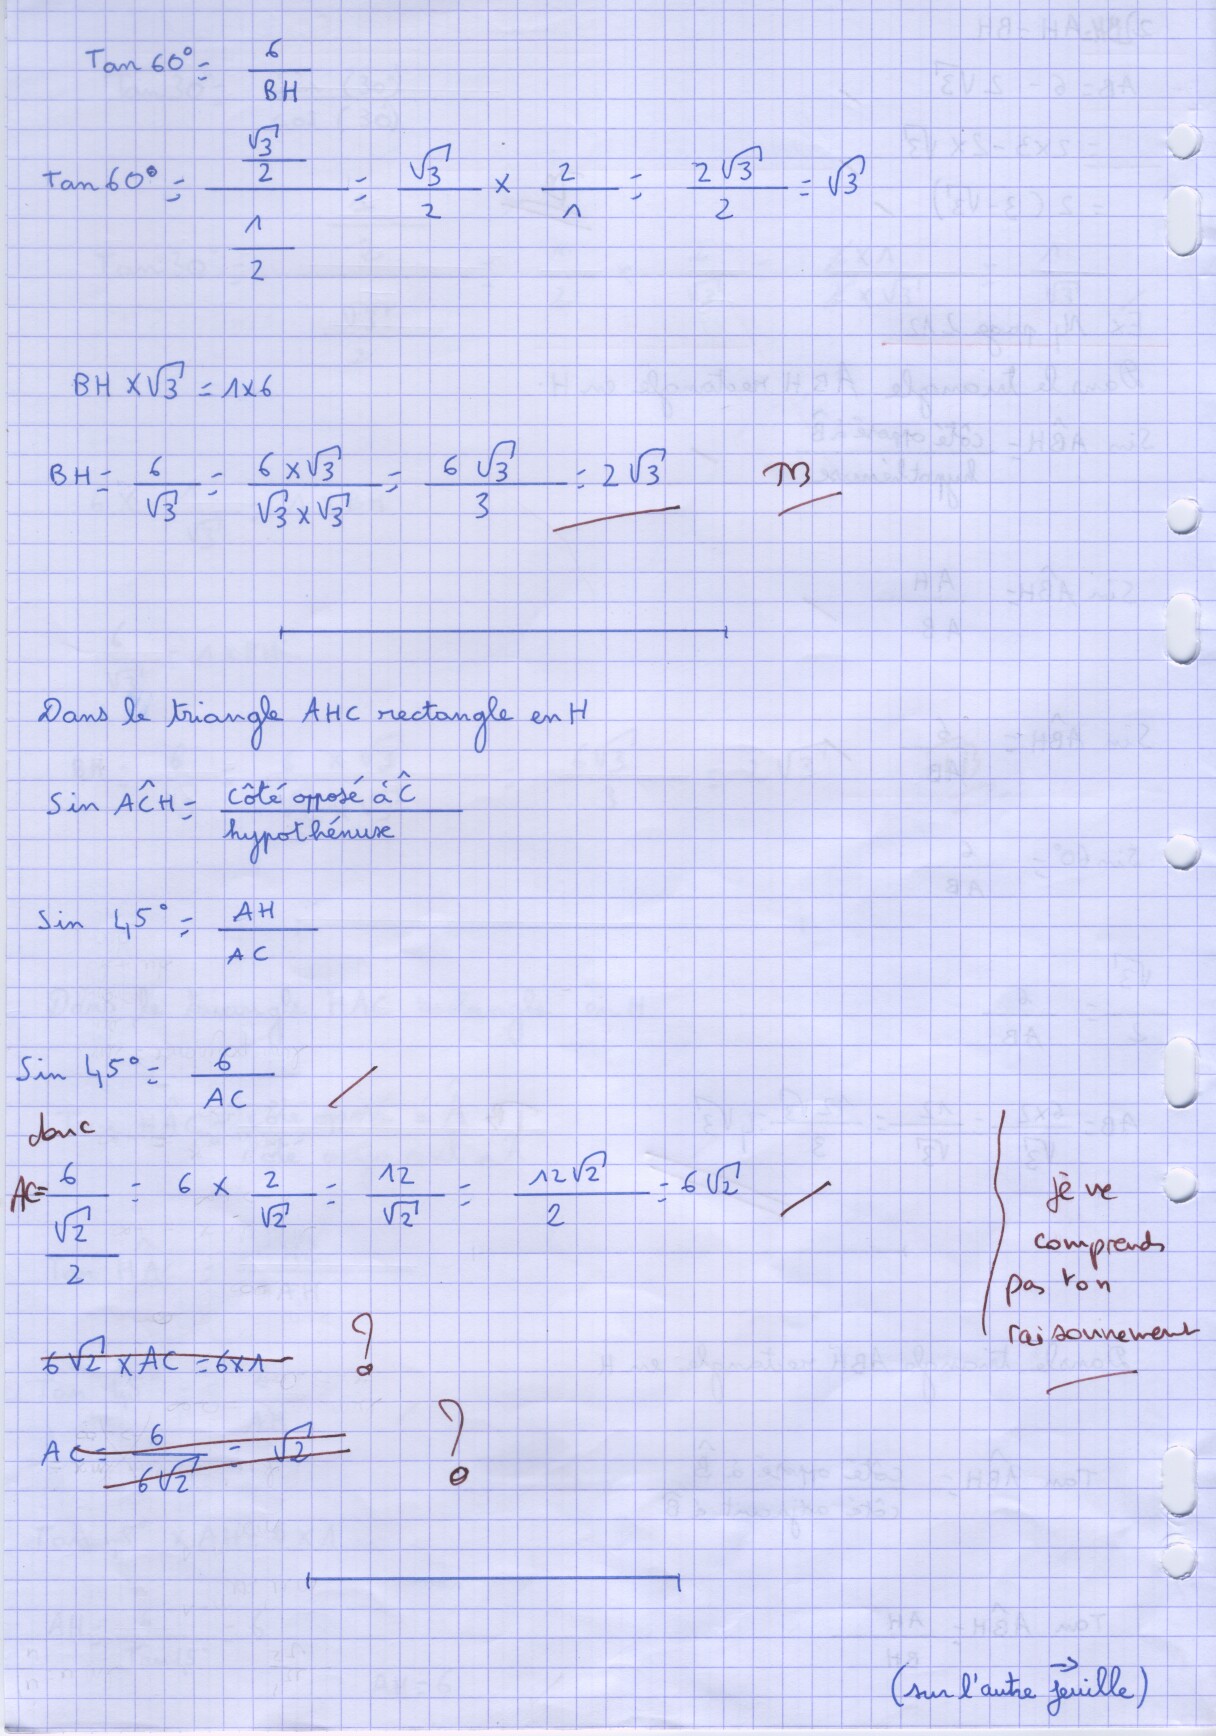 Tan 60° = 6/BH
Tan 60° = (√3/2)/(1/2) = √3/2 × 2/1 = 2√3/2 = √3
BH × √3 = 1×6
BH = 6/√3 = (6×√3)/(√3×√3) = 6√3/3 = 2√3 TB
Dans le triangle AHC rectangle en H
Sin AĈH = côté opposé à Ĉ/hypothénuse
Sin 45° = AH/AC
Sin 45° = 6/AC
donc
AC = 6/(√2/2) = 6 × 2/√2 = 12/√2 = 12√2/2 = 6√2
je ne
comprends
pas ton
raisonnement
6√2 × AC = 6×1 ?
AC = 6/6√2 = √2 ?
(sur l'autre feuille)